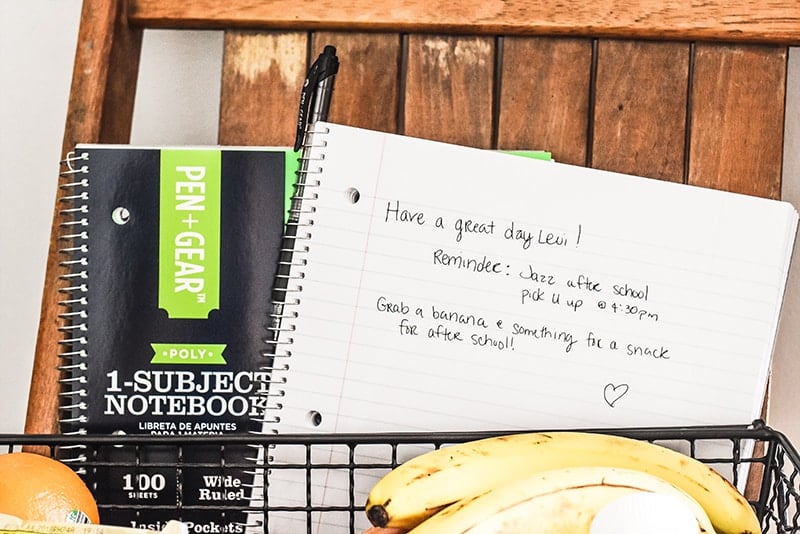 PEN+GEAR™
POLY
1-SUBJECT
NOTEBOOK
LIBRETA DE APUNTES
PARA 1 MATERIA
100
SHEETS
Wide
Ruled
Inside Pockets
Have a great day Levi!
Reminder: Jazz after school
pick u up @ 4:30pm
Grab a banana & something for a snack
for after school!